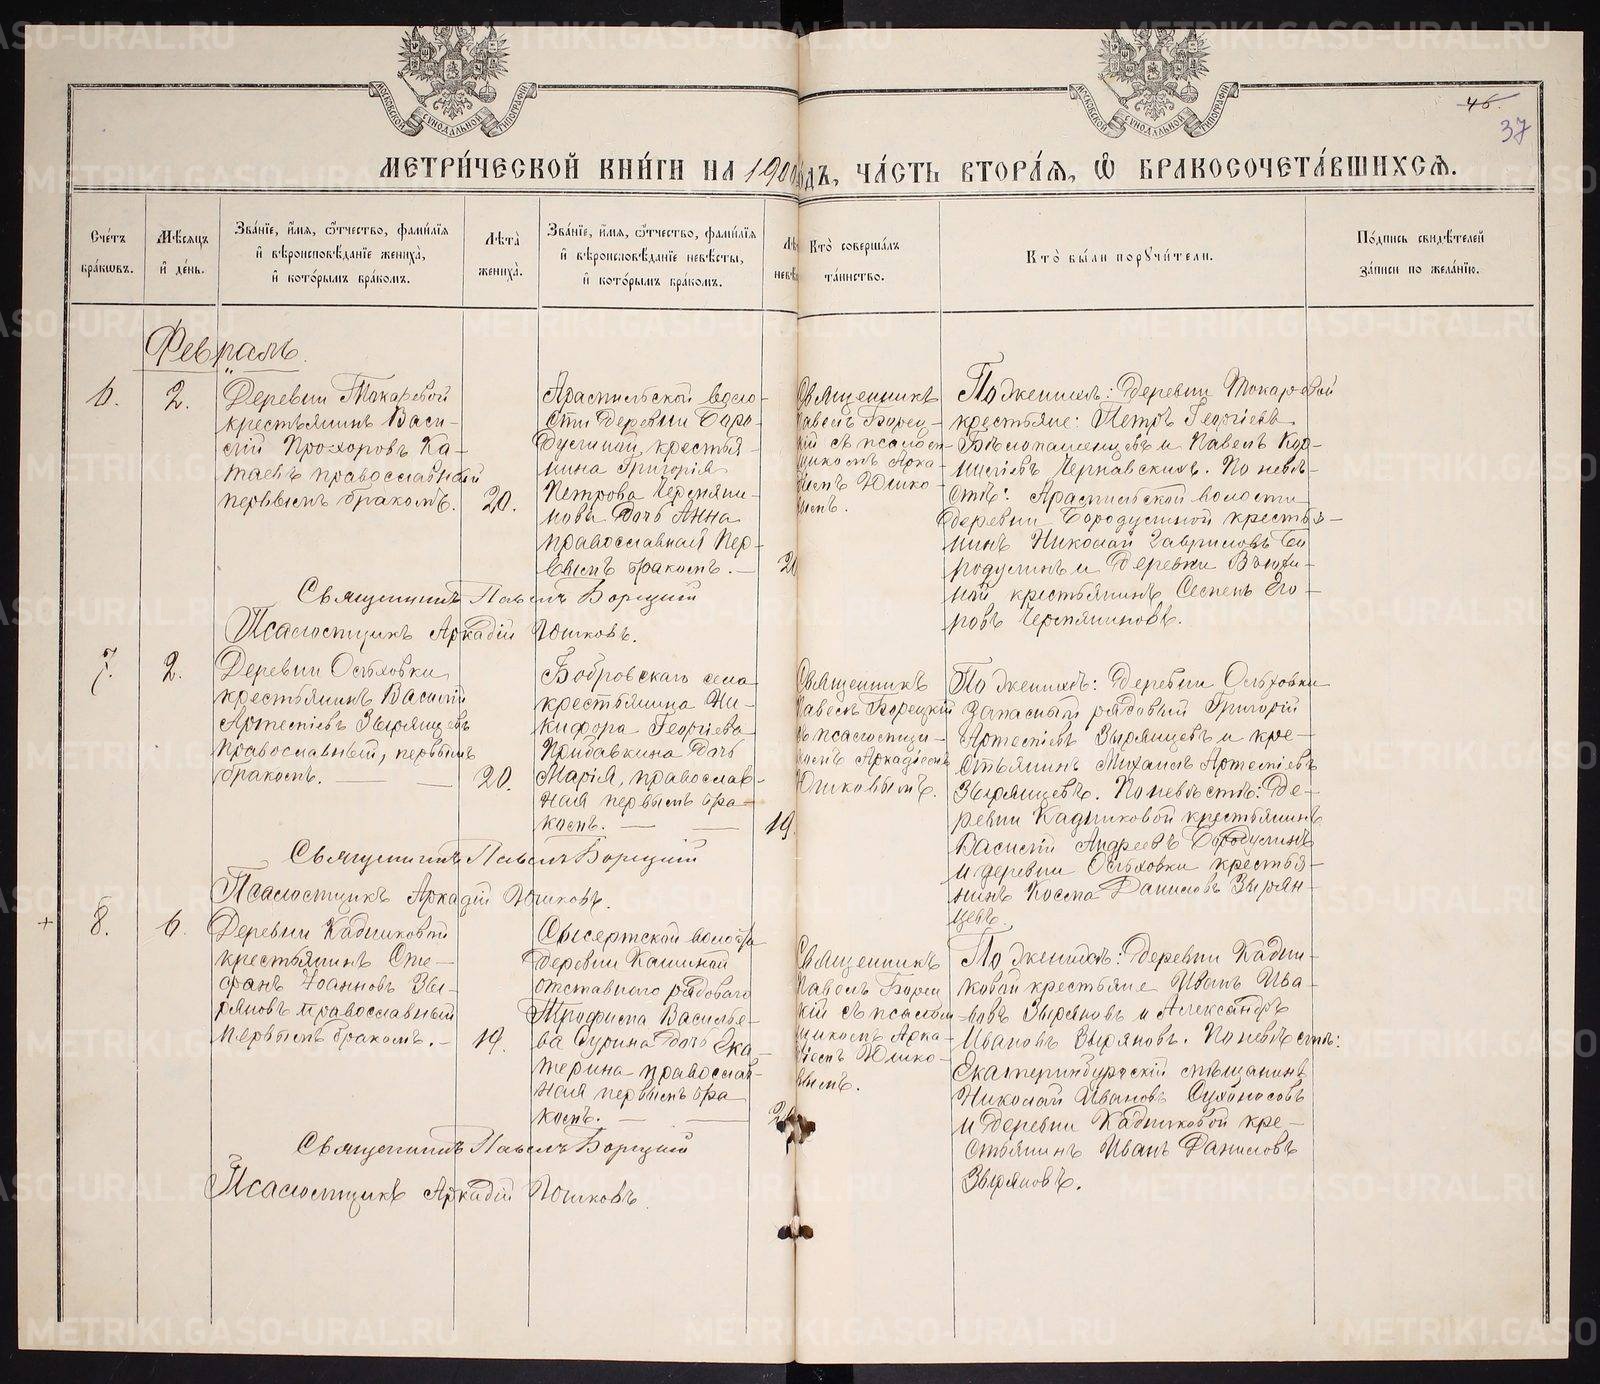 МЕТРИ́ЧЕСКОЙ КНИ́ГИ НА 1900 ГОДЪ, ЧА́СТЬ ВТОРА́Я, Ѽ БРАКОСОЧЕТА́ВШИХСЯ.
МОСКОВСКОЙ СУНОДАЛЬНОЙ ТИПОГРАФІИ
МОСКОВСКОЙ СУНОДАЛЬНОЙ ТИПОГРАФІИ
46.
37
Сче́тъ
бра́кωвъ.
Мѣ́сяцъ
и҆ де́нь.
Зва́нїе, и҆́мя, ѻ҆́тчество, фами́лїя
и҆ вѣроисповѣ́данїе жениха̀,
и҆ кото́рымъ бра́комъ.
Лѣ́та
жениха̀.
Зва́нїе, и҆́мя, ѻ҆́тчество, фами́лїя
и҆ вѣроисповѣ́данїе невѣ́сты,
и҆ кото́рымъ бра́комъ.
Лѣ
невѣ
Кто̀ соверша́лъ
та́инство.
Кто̀ бы́ли порꙋчи́тели.
По́дпись свидѣ́телей
за́писи по жела́нїю.
Февраль.
6.
2.
Деревни Токаревой
крестьянинъ Васи-
лій Прохоровъ Ка-
таевъ православный
первымъ бракомъ.
20.
Арамильской воло-
сти деревни Боро-
дулиной, крестья-
нина Григорія
Петрова Чермяни-
нова дочь Анна
православная пер-
вымъ бракомъ. —
20
Священникъ
Павелъ Борец-
кій съ псалом-
щикомъ Арка-
діемъ Юшко-
вымъ.
По женихѣ: деревни Токаревой
крестьяне: Петръ Георгіевъ
Бѣлопашенцевъ и Павелъ Кор-
ниліевъ Чернавскихъ. По невѣ-
стѣ: Арамильской волости
деревни Бородулиной крестья-
нинъ Николай Гавриловъ Бо
родулинъ и деревни Вьюхи-
ной крестьянинъ Семенъ Его-
ровъ Чермяниновъ.
Священникъ Павелъ Борецкій
Псаломщикъ Аркадій Юшковъ.
7.
2.
Деревни Ольховки
крестьянинъ Василій
Артеміевъ Зырянцевъ
православный, первымъ
бракомъ. —
20.
Бобровскаго села
крестьянина Ни-
кифора Георгіева
Придавкина дочь
Марія, православ-
ная первымъ бра-
комъ. — —
19.
Священникъ
Павелъ Борецкій
съ псаломщи-
комъ Аркадіемъ
Юшковымъ.
По женихѣ: деревни Ольховки
запасный рядовый Григорій
Артеміевъ Зырянцевъ и кре-
стьянинъ Михаилъ Артеміевъ
Зырянцевъ. По невѣстѣ: де-
ревни Кадниковой крестьянинъ
Василій Андреевъ Бородулинъ
и деревни Ольховки крестья-
нинъ Косма Даниловъ Зырян-
цевъ.
Священникъ Павелъ Борецкій
Псаломщикъ Аркадій Юшковъ.
+
8.
6.
Деревни Кадниковой
крестьянинъ Сте-
фанъ Іоанновъ Зы-
ряновъ православный
первымъ бракомъ. —
19.
Сысертской волости
деревни Кашиной
отставного рядоваго
Трофима Василье-
ва Сурина дочь Ека-
терина православ-
ная первымъ бра
комъ. — —
Священникъ
Павелъ Борец
кій съ псалом-
щикомъ Арка-
діемъ Юшко-
вымъ.
По женихѣ: деревни Кадни-
ковой крестьяне Иванъ Ива-
новъ Зыряновъ и Александръ
Ивановъ Зыряновъ. По невѣстѣ:
Екатеринбургскій мѣщанинъ
Николай Ивановъ Сухоносовъ
и деревни Кадниковой кре-
стьянинъ Иванъ Даниловъ
Зыряновъ.
Священникъ Павелъ Борецкій
Псаломщикъ Аркадій Юшковъ.
METRIKI.GASO-URAL.RU